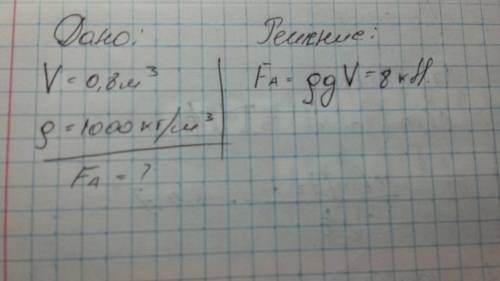 Дано:
V = 0,8 м³
ρ = 1000 кг/м³
FА = ?
Решение:
FА = ρgV = 8 кН.